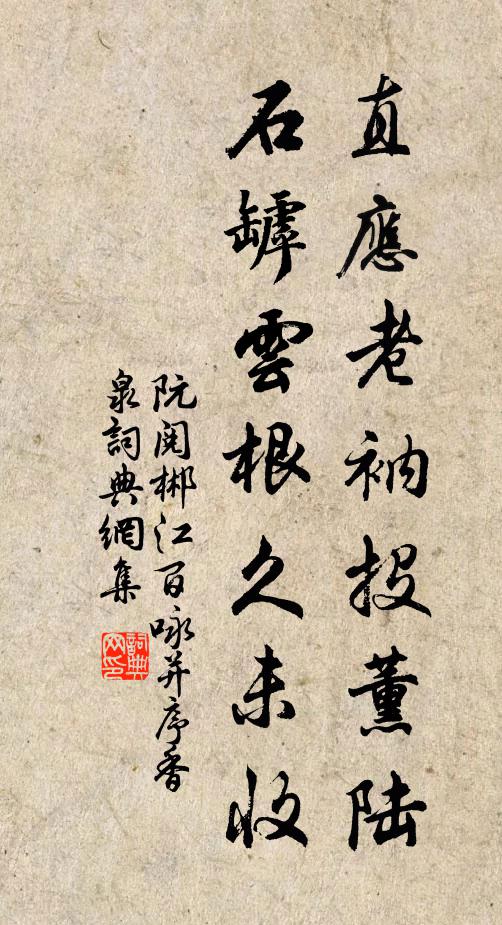 直應老衲投薰陸
石罅雲根久未收
阮閱郴江百咏并序香
泉詞典網集
詞典网印